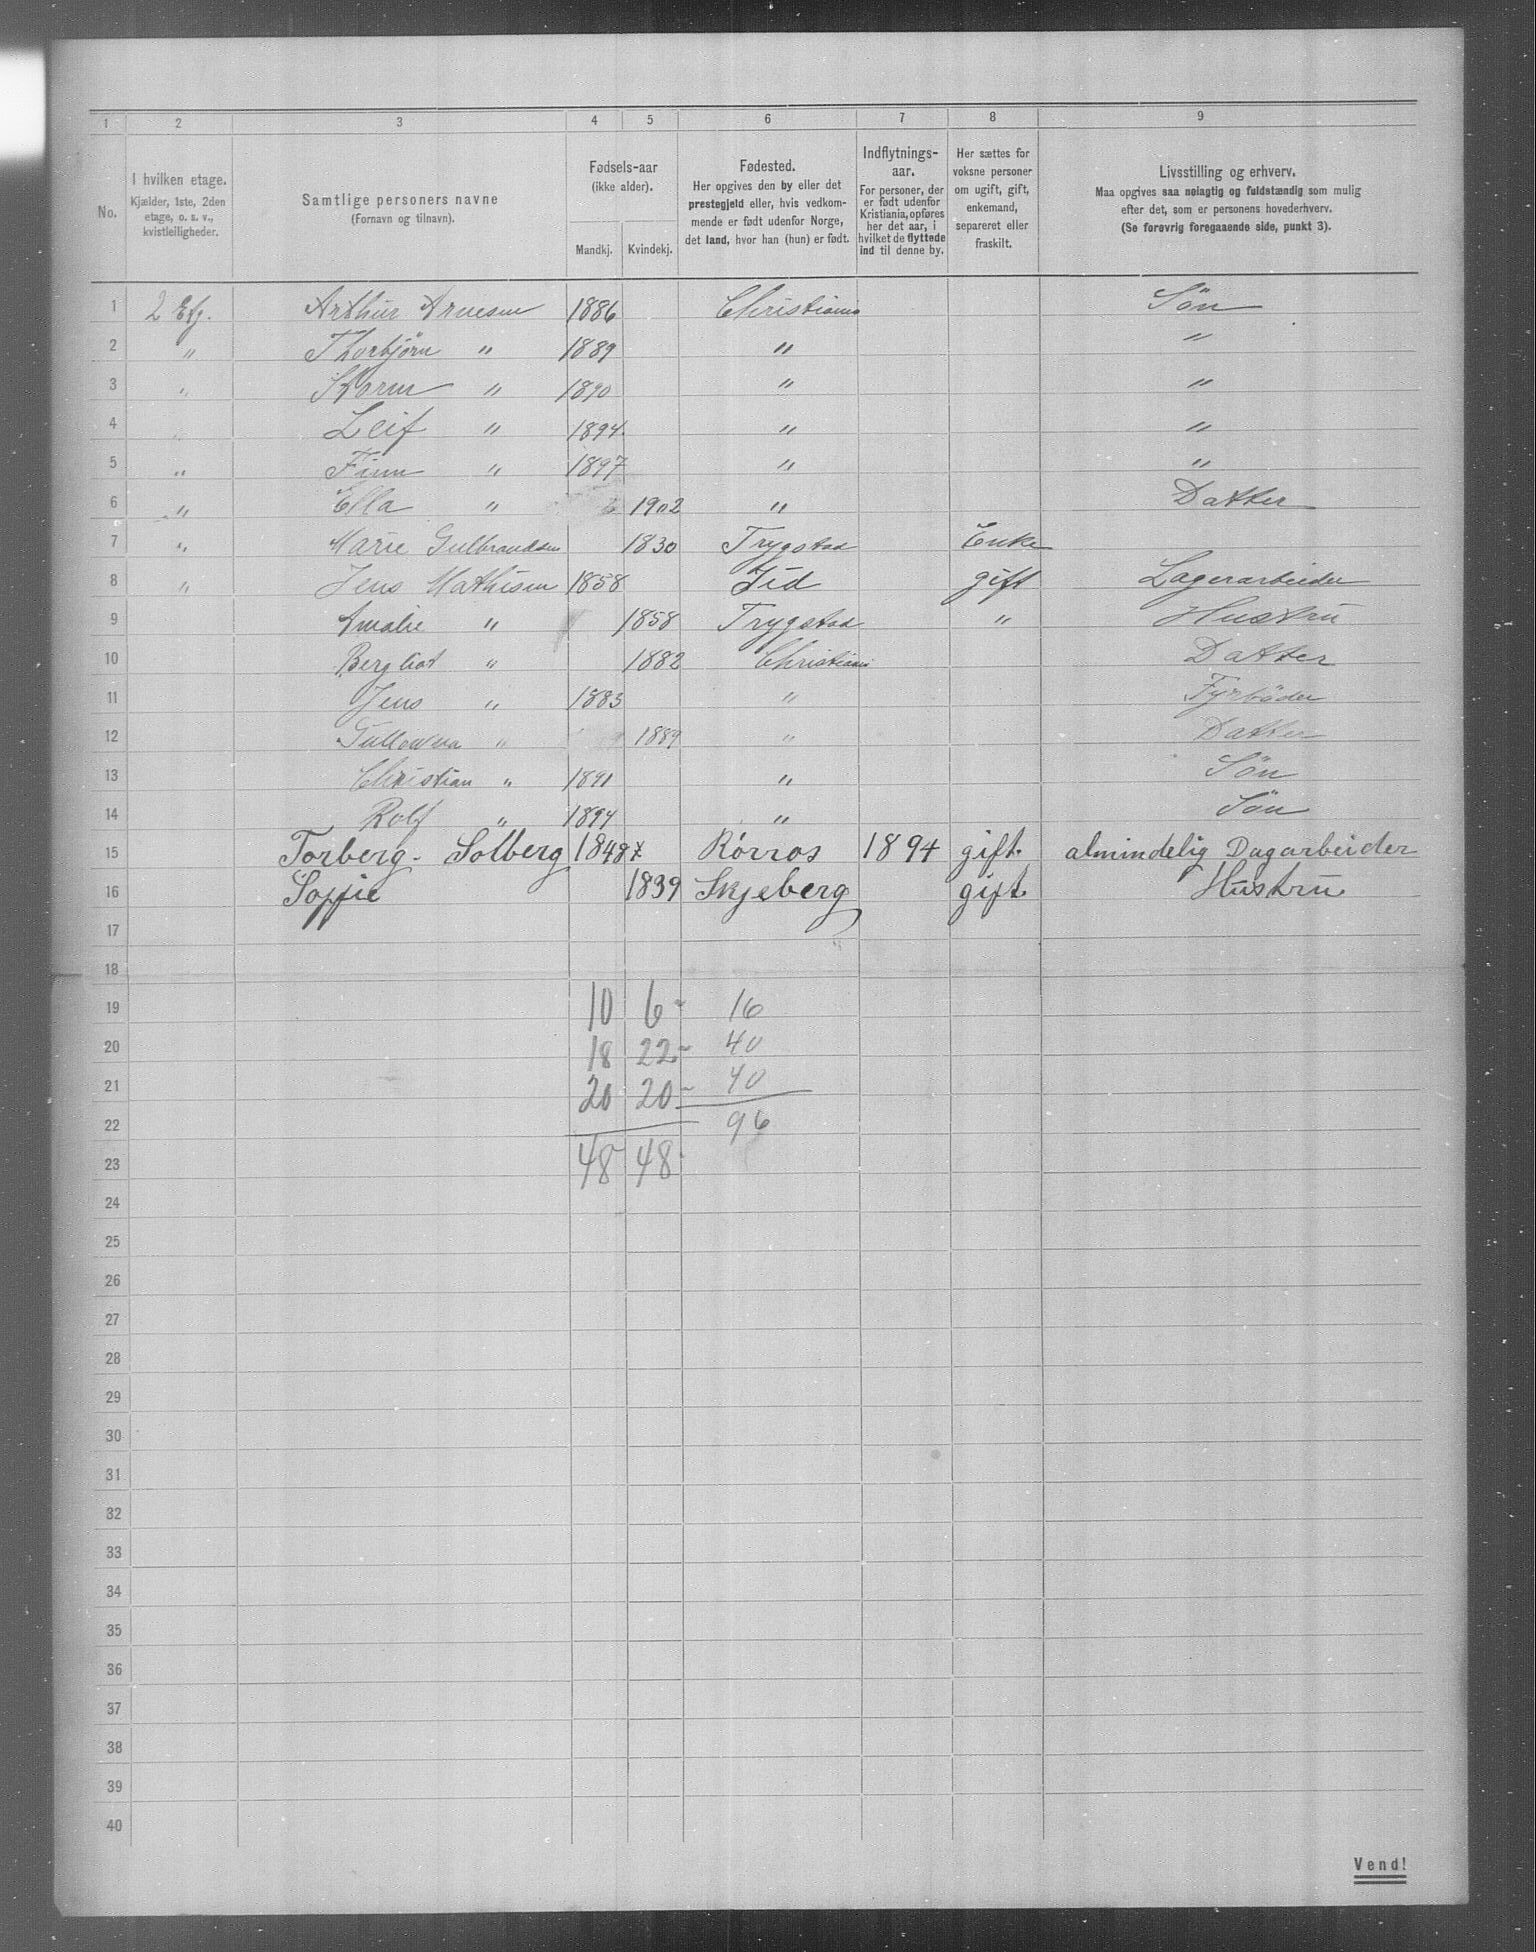 1 2 3 4 5 6 7 8 9
No.
I hvilken etage.
Kjælder, 1ste, 2den
etage, o. s. v.,
kvistleiligheder.
Samtlige personers navne
(Fornavn og tilnavn).
Fødsels-aar
(ikke alder).
Mandkj. Kvindekj.
Fødested.
Her opgives den by eller det
prestegjeld eller, hvis vedkom-
mende er født udenfor Norge,
det land, hvor han (hun) er født.
Indflytnings-
aar.
For personer, der
er født udenfor
Kristiania, opføres
her det aar, i
hvilket de flyttede
ind til denne by.
Her sættes for
voksne personer
om ugift, gift,
enkemand,
separeret eller
fraskilt.
Livsstilling og erhverv.
Maa opgives saa nøiagtig og fuldstændig som mulig
efter det, som er personens hovederhverv.
(Se forøvrig foregaaende side, punkt 3).
1 2 Etg. Arthur Arnesen 1886 Christiania Søn
2 " Thorbjørn " 1889 " "
3 " " 1890 " "
4 " Leif " 1894 " "
5 " Finn " 1897 " "
6 " Ella " 1902 " Datter
7 " Marie Gulbrandsen 1830 Trygstad Enke
8 " Jens Mathisen 1858 gift Lagerarbeider
9 Amalie " 1858 Trygstad " Hustru
10 Bergliot " 1882 Christiania Datter
11 Jens " 1883 " Fyrbøder
12 " 1889 " Datter
13 Christian " 1891 " Søn
14 Rolf " 1894 " Søn
15 Torberg Solberg 1848 x Rørros 1894 gift. almindelig Dagarbeider
16 Soffie 1839 Skjeberg gift Hustru
17
18
19 10 6 16
20 18 22 40
21 20 20 40
22 96
23 48 48
24
25
26
27
28
29
30
31
32
33
34
35
36
37
38
39
40
Vend!